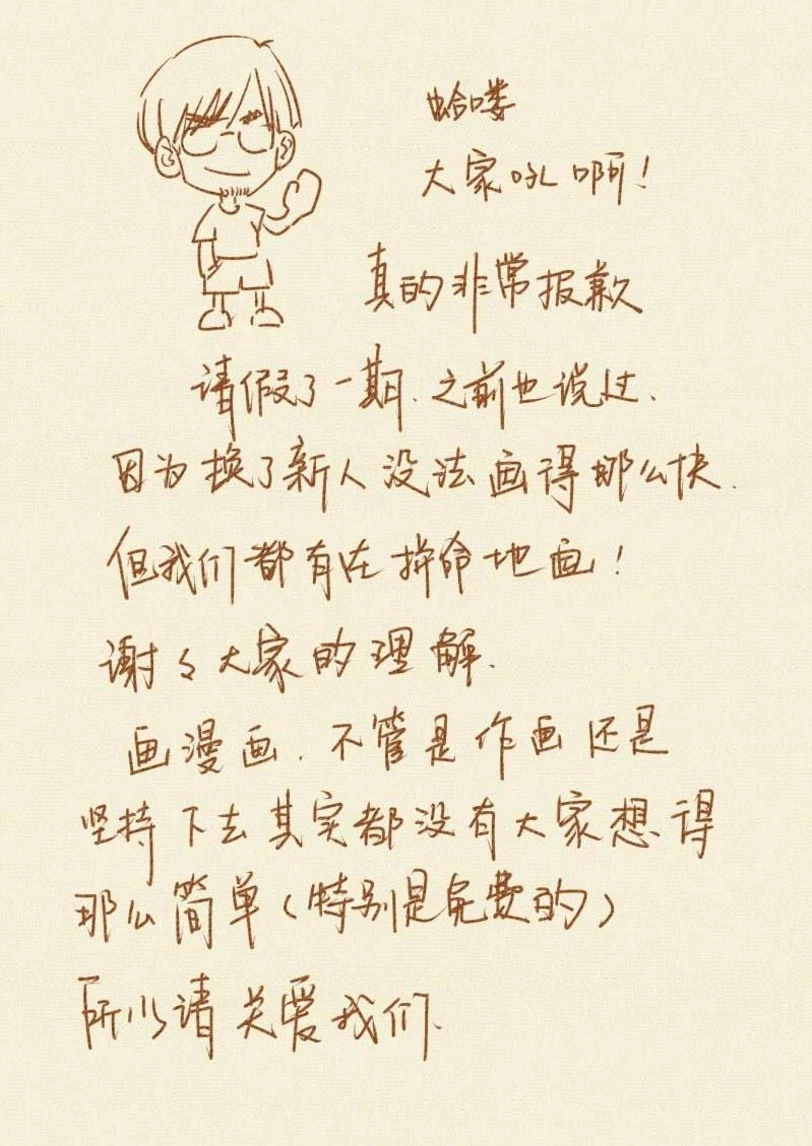 蛤喽
大家吼啊！
真的非常报歉
请假了一期.之前也说过.
因为换了新人没法画得那么快.
但我们都有在拚命地画！
谢々大家的理解.
画漫画.不管是作画还是
坚持下去其实都没有大家想得
那么简单（特别是免费的）
所以请关爱我们.